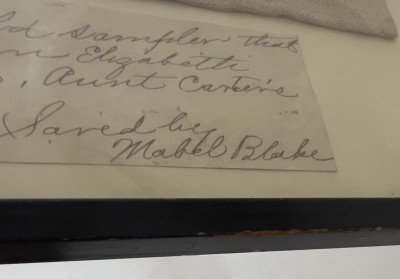 ld sampler that
n Elizabeth
, Aunt Carter's
Saved by
Mabel Blake